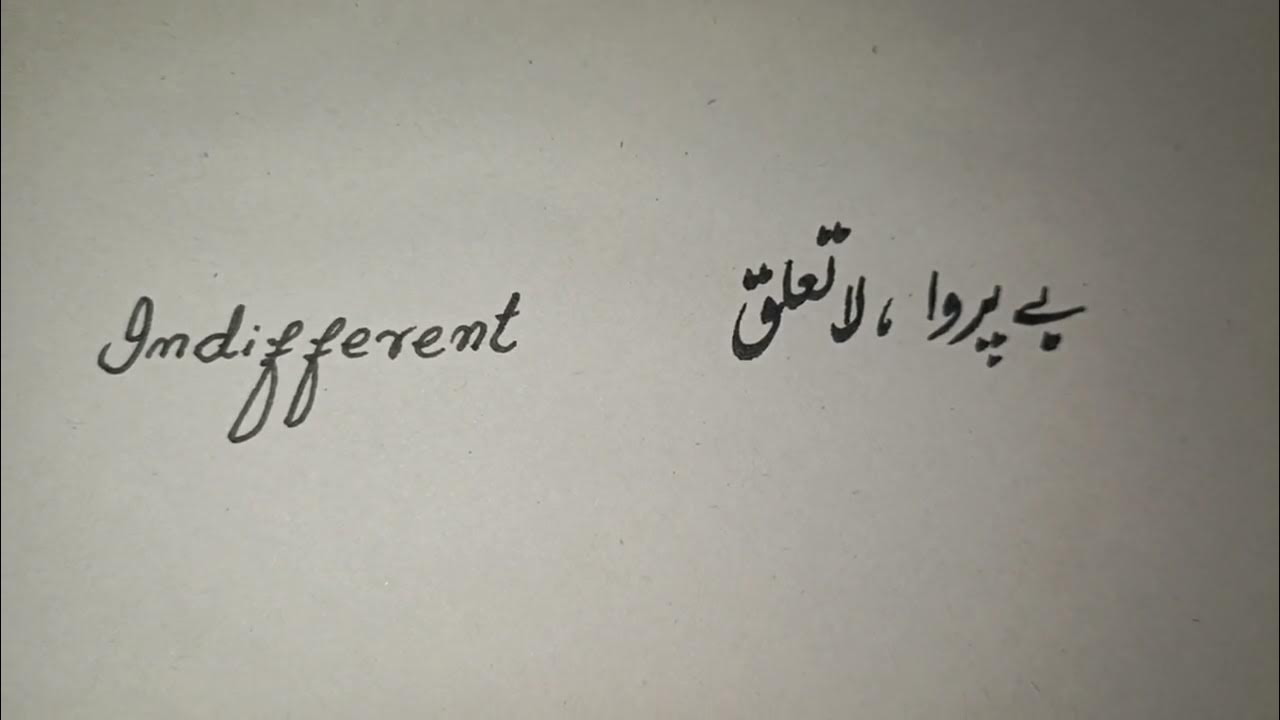 Indifferent بے پروا ، لا تعلق